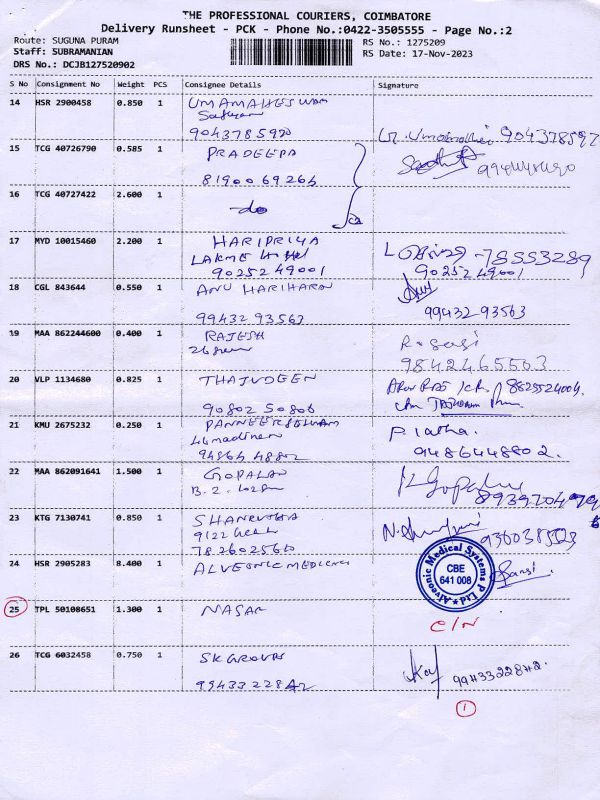 THE PROFESSIONAL COURIERS, COIMBATORE
Delivery Runsheet - PCK - Phone No.:0422-3505555 - Page No.:2
Route: SUGUNA PURAM RS No.: 1275209
Staff: SUBRAMANIAN RS Date: 17-Nov-2023
DRS No.: DCJB127520902
S No Consignment No Weight PCS Consignee Details Signature
14 HSR 2900458 0.850 1 UMAMAHESWARI
9043785970
15 TCG 40726790 0.585 1 PRADEEPA
8190069266
16 TCG 40727422 2.600 1 -do
17 MYD 10015460 2.200 1 HARIPRIYA
LAKME
9025249001 9025249001
18 CGL 843644 0.550 1 ANU HARIHARAN
99432 93563 99432 93563
19 MAA 862244600 0.400 1 RAJESH R. Sasi
9842465503
20 VLP 1134680 0.825 1 THAJUDEEN
90802 50806
21 KMU 2675232 0.250 1 PANNEERSELVAM P. latha.
9486448802 9486448802.
22 MAA 862091641 1.500 1 GOPALAN
23 KTG 7130741 0.850 1 SHANMUGA
7826025660
24 HSR 2905283 8.400 1 ALVEONIC MEDICAL
Alveonic Medical Systems P Ltd
CBE
641 008
25 TPL 50108651 1.300 1 NASAR C/N
26 TCG 6032458 0.750 1 SK GROUPS
9943322842 9943322842.
1